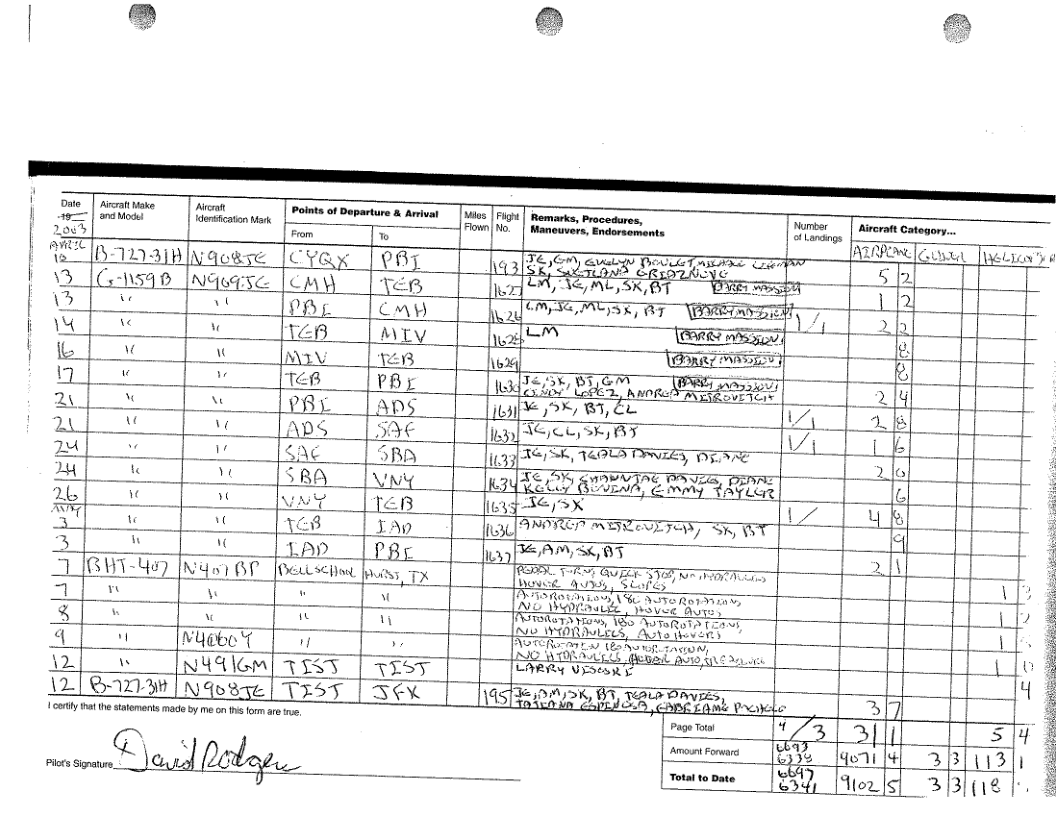 Date 19 2003 Aircraft Make and Model Aircraft Identification Mark Points of Departure & Arrival From To Miles Flown Flight No. Remarks, Procedures, Maneuvers, Endorsements Number of Landings Aircraft Category... AIRPLANE GLIDER
APRIL B-727-31H N908JE CYQX PBI 193 JE, GM, 5 2
SK, SVETLANA
13 G-1159B N909JE CMH TEB 1627 LM, JE, ML, SK, BT BARRY MASSION 1 2
13 " " PBI CMH 1626 LM, JE, ML, SK, BT BARRY MASSION 1/1 2 2
14 " " TEB MIV 1628 LM BARRY MASSION 8
16 " " MIV TEB 1629 BARRY MASSION 8
17 " " TEB PBI 1630 JE, SK, BT, GM BARRY MASSION 2 4
CINDY LOPEZ, ANDREA MITROVITCH
21 " " PBI ADS 1631 JE, SK, BT, CL 1/1 2 8
21 " " ADS SAF 1632 JE, CL, SK, BT 1/1 1 6
24 " " SAF SBA 1633 JE, SK, TEALA DAVIES, DIANE 2 0
24 " " SBA VNY 1634 JE, SK, DAVIES, DIANE 6
KELLY BOVINA, EMMY TAYLER
26 " " VNY TEB 1635 JE, SK 1/ 4 8
MAY 3 " " TEB IAD 1636 ANDREA MITROVITCH, SK, BT 9
3 " " IAD PBI 1637 JE, AM, SK, BT 2 1
7 BHT-407 N407BP BELL SCHOOL HURST, TX PEDAL TURNS, QUICK STOP, NO HYDRAULICS
HOVER AUTOS, SLOPES
7 " " " " AUTOROTATIONS, 180 AUTOROTATIONS, 1
NO HYDRAULIC, HOVER AUTOS
8 " " " " AUTOROTATIONS, 180 AUTOROTATIONS, 1
NO HYDRAULICS, AUTO HOVERS
9 " " " AUTOROTATION 180 AUTOROTATION, 1
NO HYDRAULICS, HOVER AUTO,
12 " N491GM TIST TIST LARRY VISOSKI 4
12 B-727-31H N908JE TIST JFK 195 SK, BT, TEALA DAVIES, 3 7
TATIANA
I certify that the statements made by me on this form are true.
Page Total 4/3 31 1 5 4
Amount Forward 6693 6338 9071 4 3 3 113 1
Pilot's Signature David Rodgers
Total to Date 6697 6341 9102 5 3 3 118